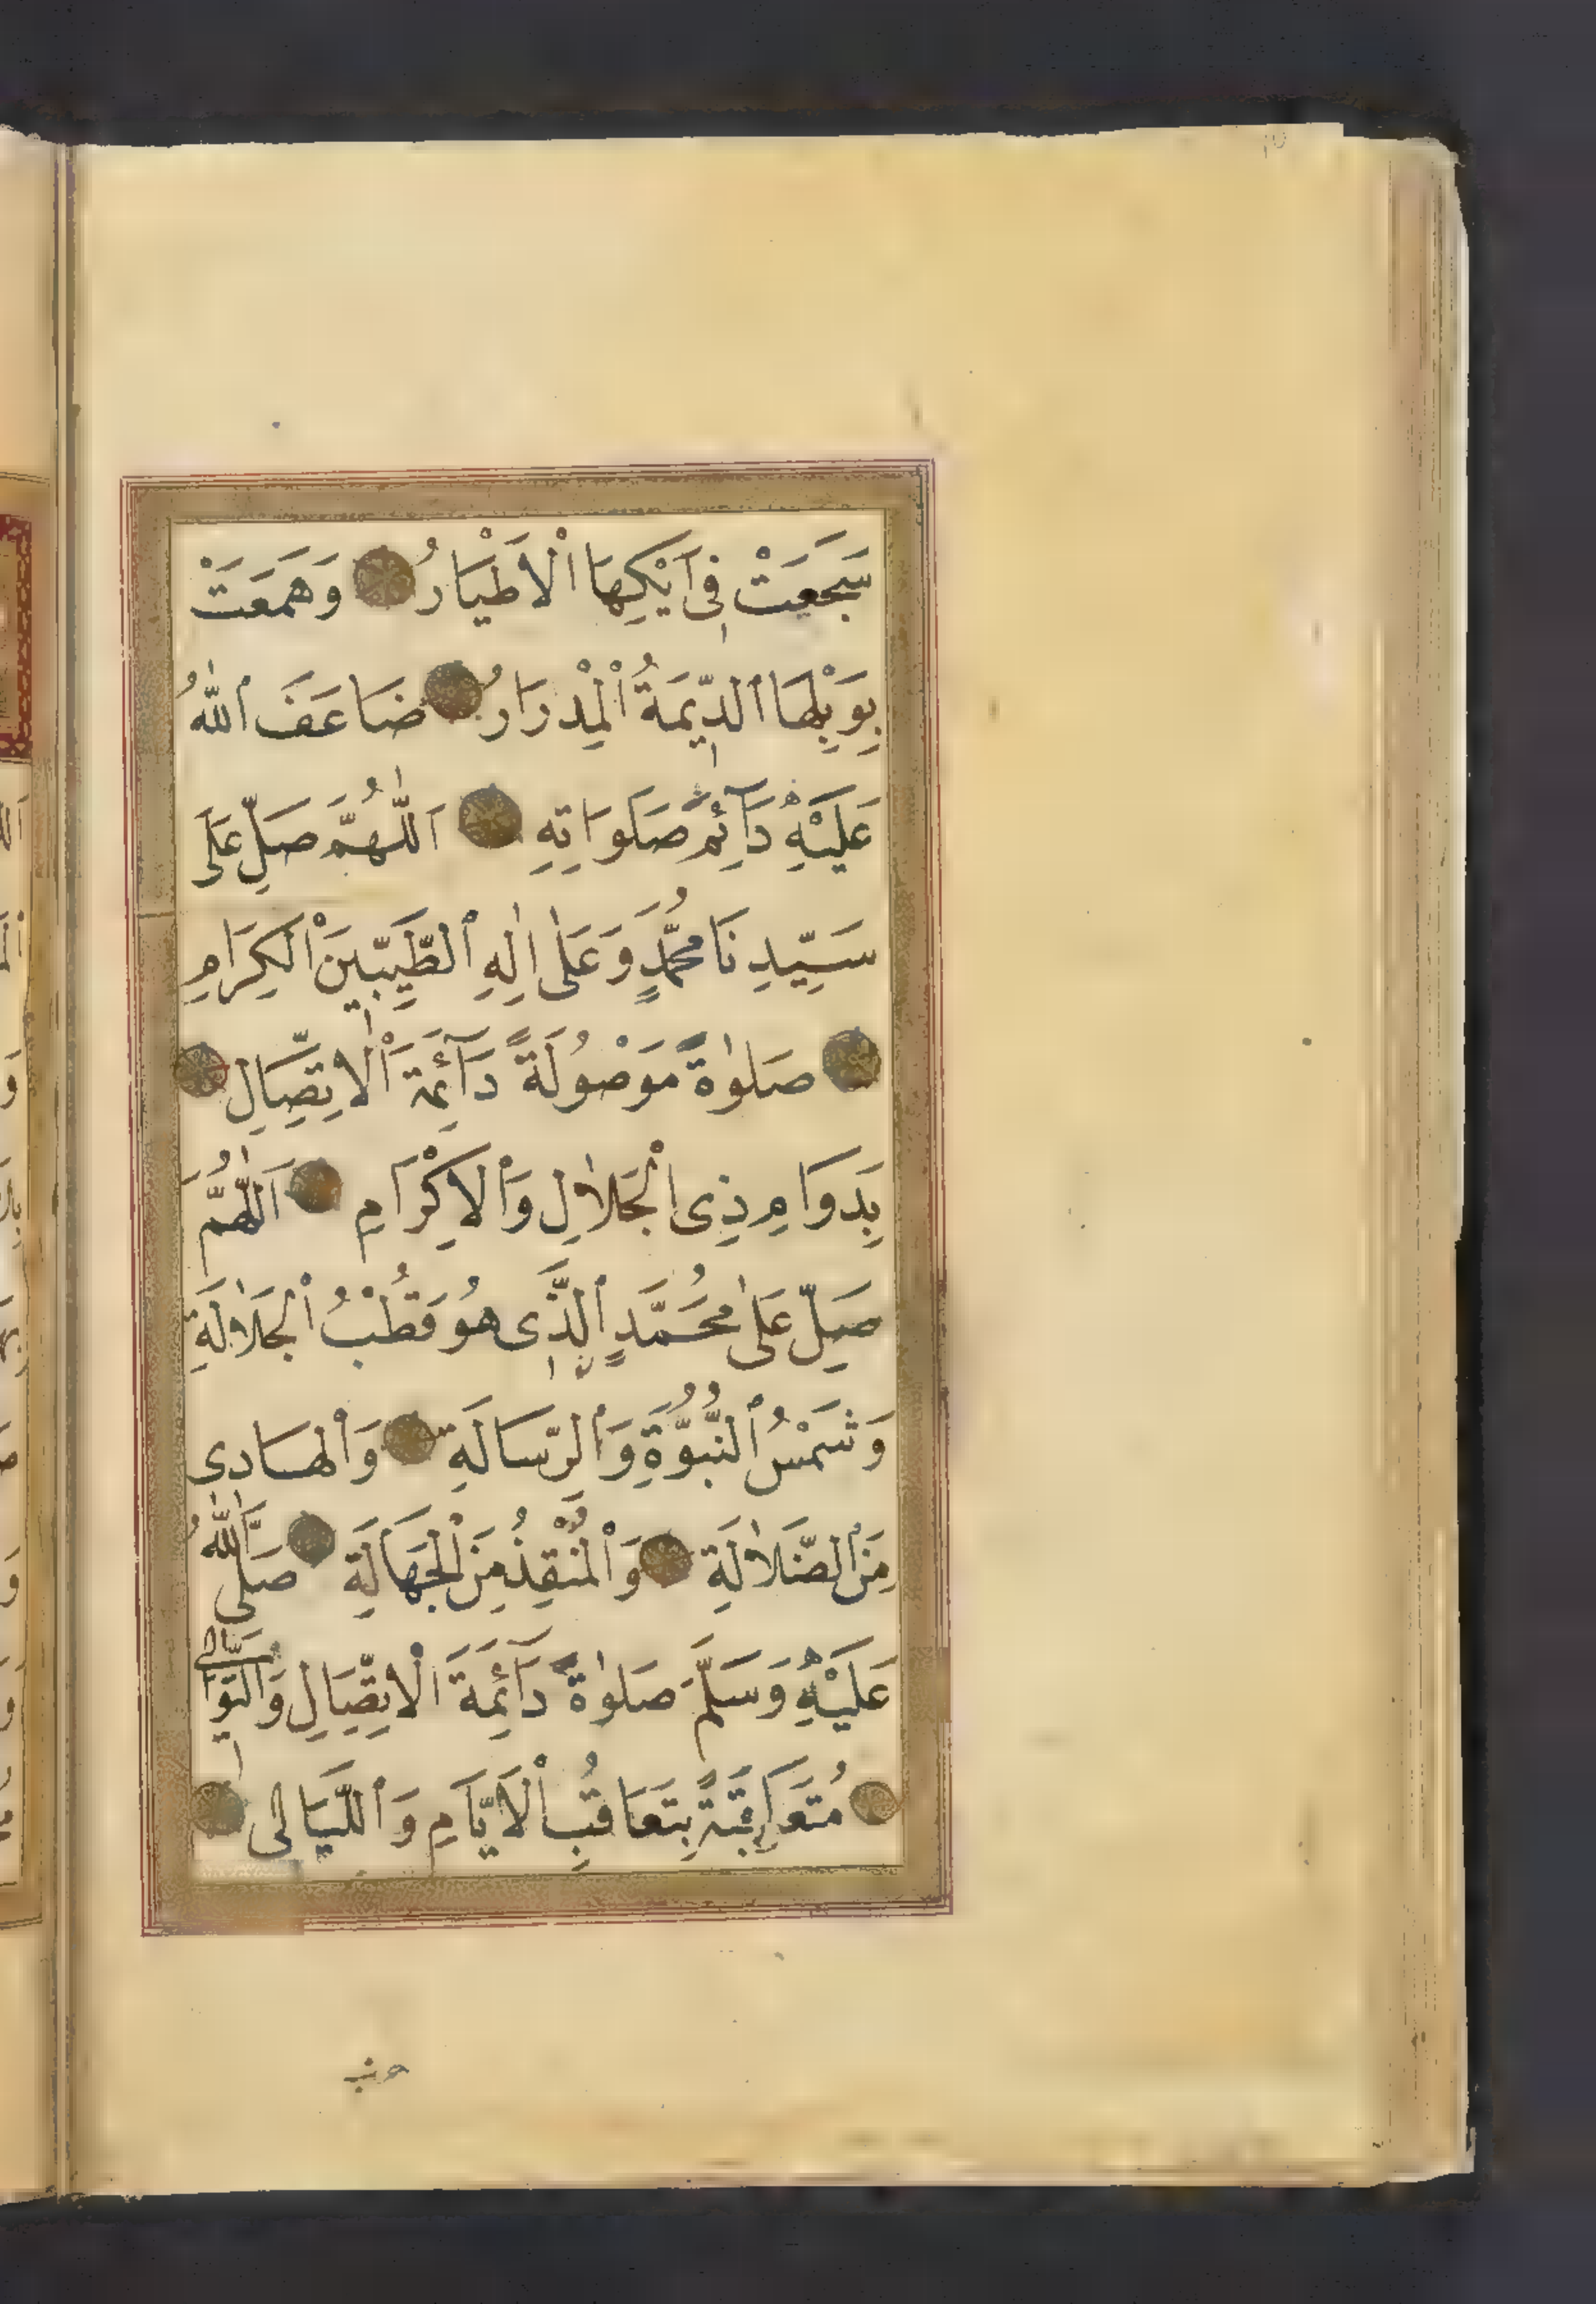 سَجَعَتْ فِي اَيْكِهَا الْاَطْيَارُ وَهَمَعَتْ
بِوَبْلِهَا الدِّيمَةُ الْمِدْرَارُ ضَاعَفَ اللّٰهُ
عَلَيْهِ دَآئِمَ صَلَوَاتِهِ اَللّٰهُمَّ صَلِّ عَلَى
سَيِّدِنَا مُحَمَّدٍ وَعَلٰى اٰلِهِ الطَّيِّبِينَ الْكِرَامِ
صَلٰوةً مَوْصُولَةً دَآئِمَةَ الْاِتِّصَالِ
بِدَوَامِ ذِى الْجَلَالِ وَالْاِكْرَامِ اَللّٰهُمَّ
صَلِّ عَلٰى مُحَمَّدٍ الَّذِى هُوَ قُطْبُ الْجَلَالَةِ
وَشَمْسُ النُّبُوَّةِ وَالرِّسَالَةِ وَالْهَادِى
مِنَ الضَّلَالَةِ وَالْمُنْقِذُ مِنَ الْجَهَالَةِ صَلَّى اللّٰهُ
عَلَيْهِ وَسَلَّمَ صَلٰوةً دَآئِمَةَ الْاِتِّصَالِ وَالتَّوَالِى
مُتَعَاقِبَةً بِتَعَاقُبِ الْاَيَّامِ وَاللَّيَالِى